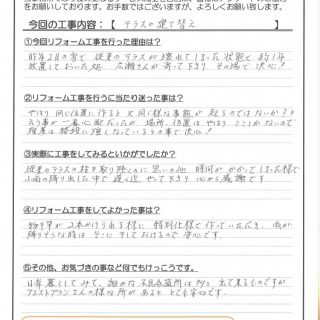 をお願いしております。お手数ではございますが、よろしくお願い致します。
今回の工事内容：【 テラスの建て替え 】
①今回リフォーム工事を行った理由は？
昨年2月の雪で 従来のテラスが壊れてしまった状態で 約1年
放置しておいた処 広瀬さんが寄って下り その場で決心！
②リフォーム工事を行うに当たり迷った事は？
やはり 同じ位置に作ると 又同様な事態が 起るのではないかと
言う事が一番心配だったが 場所、位置は やはり ここしかないので
強度は格段に強くなっているとの事で決心！
③実際に工事をしてみるといかがでしたか？
従来のテラスの柱を取り除くのに思いの他 時間がかかってしまった様で
小雨の降り出した中で 遅く迄 やって下り 心から感謝です。
④リフォーム工事をしてよかった事は？
物干竿が2本かけられる様に 特別仕様で作っていただき、雨が
降りそうな時は そこに干しておけるので 安心です。
⑤その他、お気づきの事など何でもけっこうです。
日常暮らしてみて、細かな不具合箇所は 多々 出て来るものですが
アシストプランさんの様な所があると とても安心です。